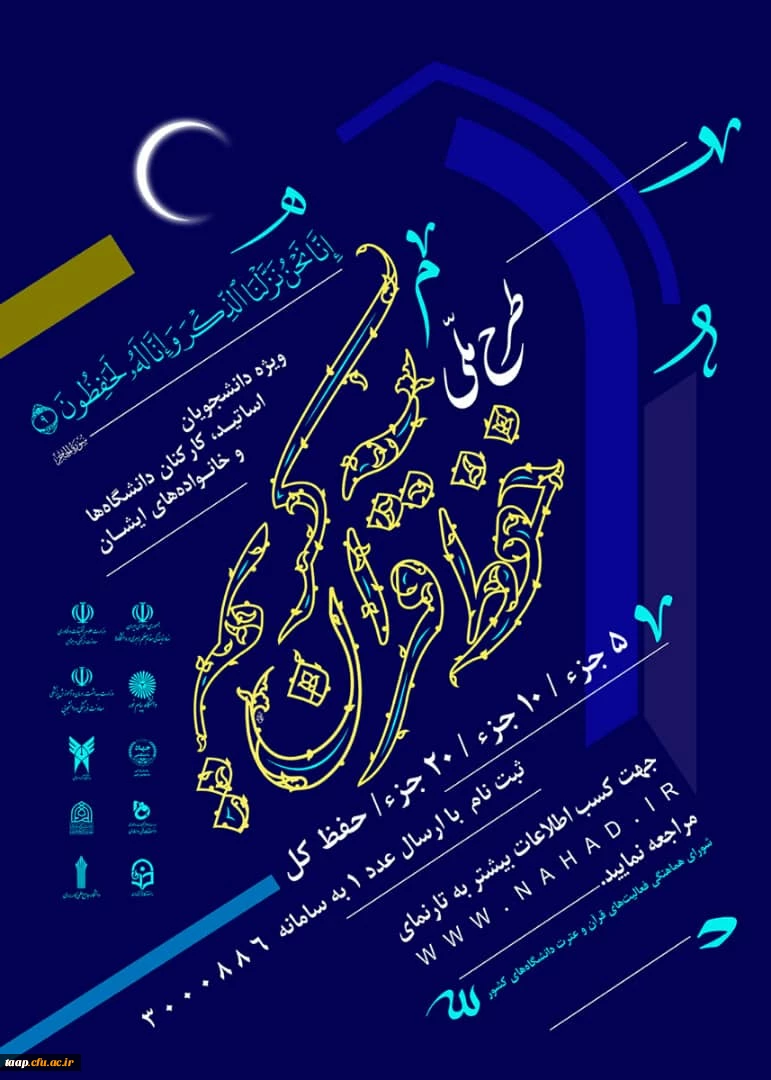 إِنَّا نَحْنُ نَزَّلْنَا الذِّكْرَ وَإِنَّا لَهُ لَحَافِظُونَ ٩
ویژه دانشجویان
اساتید، کارکنان دانشگاه‌ها
و خانواده‌های ایشان
طرح ملّی
حفظ قرآن کریم
۵ جزء / ۱۰ جزء / ۲۰ جزء / حفظ کل
ثبت نام با ارسال عدد ۱ به سامانه ۳۰۰۰۰۸۸۶
جهت کسب اطلاعات بیشتر به تارنمای
WWW.NAHAD.IR
مراجعه نمایید.
شورای هماهنگی فعالیت‌های قرآن و عترت دانشگاه‌های کشور
taap.cfu.ac.ir